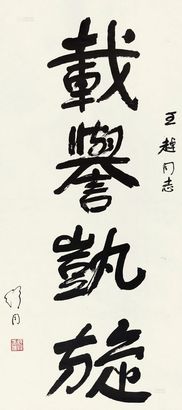 王超同志
載譽凱旋
舒同